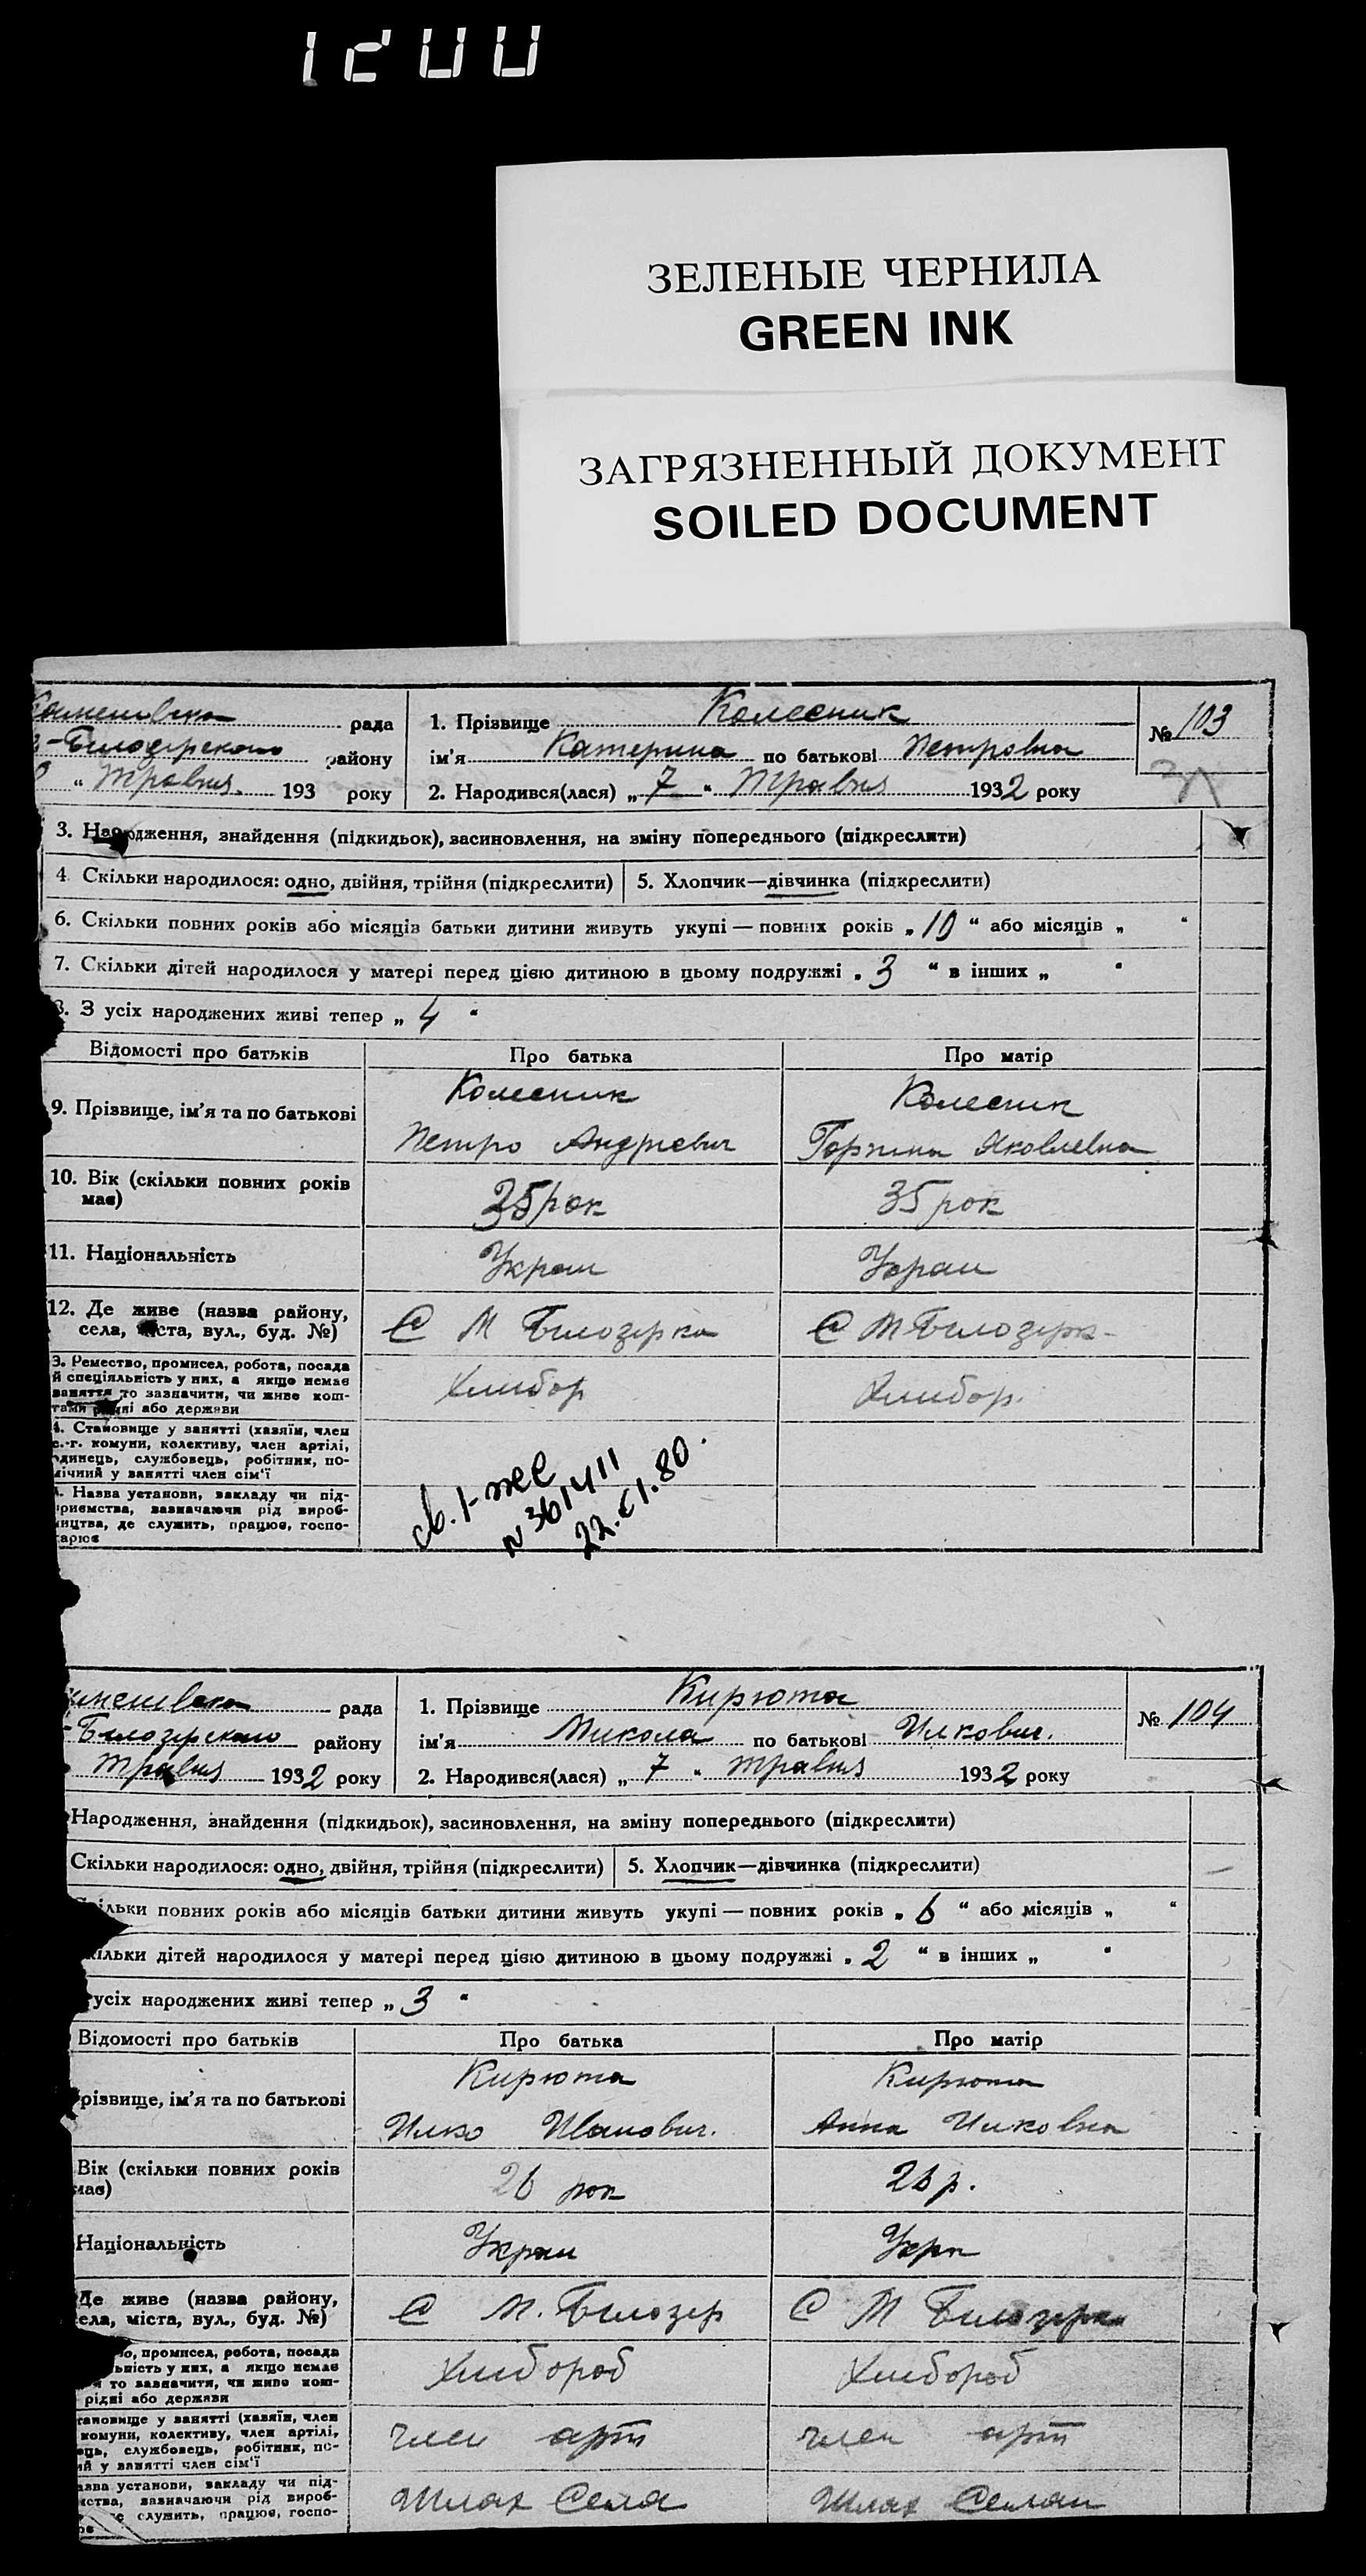 1200
ЗЕЛЕНЫЕ ЧЕРНИЛА
GREEN INK
ЗАГРЯЗНЕННЫЙ ДОКУМЕНТ
SOILED DOCUMENT
рада
1. Прізвище Колесник
№ 103
-Білозерського району
ім'я Катерина по батькові Петровна
" Травня 193 року
2. Народився(лася) „ 7 " Травня 1932 року
3. Народження, знайдення (підкидьок), засиновлення, на зміну попереднього (підкреслити)
4 Скільки народилося: одно, двійня, трійня (підкреслити) 5. Хлопчик—дівчинка (підкреслити)
6. Скільки повних років або місяців батьки дитини живуть укупі — повних років „ 10 " або місяців „ "
7. Скільки дітей народилося у матері перед цією дитиною в цьому подружжі „ 3 " в інших „ "
8. З усіх народжених живі тепер „ 4 "
Відомості про батьків Про батька Про матір
Колесник Колесник
9. Прізвище, ім'я та по батькові
Петро Андриевич Яковлевна
10. Вік (скільки повних років
має)
35 рок 35 рок
11. Національність Украи Украи
12. Де живе (назва району,
села, міста, вул., буд. №)
С М Білозерка С М Білозерк-
3. Ремество, промисел, робота, посада
й спеціяльність у них, а якщо немає
заняття то зазначити, чи живе кош-
тами рідні або держави
Хлибор Хлибор.
4. Становище у занятті (хазяїн, член
с.-г. комуни, колективу, член артілі,
одинець, службовець, робітник, по-
мічний у занятті член сім'ї
. Назва установи, закладу чи під-
приємства, зазначаючи рід вироб-
ництва, де служить, працює, госпо-
дарює
св. 1-же
N 361411
22.01.80.
рада
1. Прізвище Кирюта
№ 104
-Білозерського району
ім'я Микола по батькові Илкович.
Травня 1932 року
2. Народився(лася) „ 7 " Травня 1932 року
Народження, знайдення (підкидьок), засиновлення, на зміну попереднього (підкреслити)
Скільки народилося: одно, двійня, трійня (підкреслити) 5. Хлопчик—дівчинка (підкреслити)
Скільки повних років або місяців батьки дитини живуть укупі — повних років „ 6 " або місяців „ "
кільки дітей народилося у матері перед цією дитиною в цьому подружжі „ 2 " в інших „ "
усіх народжених живі тепер „ 3 "
Відомості про батьків Про батька Про матір
Кирюта Кирюта
різвище, ім'я та по батькові
Илко Иванович. Анна Илковна
Вік (скільки повних років
має)
26 рок 26 р.
Національність Украи Укра
Де живе (назва району,
села, міста, вул., буд. №)
С М. Білозер С М Білозерка
о, промисел, робота, посада
льність у них, а якщо немає
я то зазначити, чи живе кош-
рідні або держави
Хлибороб Хлибороб
тановище у занятті (хазяїн, член
комуни, колективу, член артілі,
ець, службовець, робітник, по-
ий у занятті член сім'ї
член арт член арт
азва установи, закладу чи під-
мства, зазначаючи рід вироб-
де служить, працює, госпо-
Шлях Села Шлях Селян